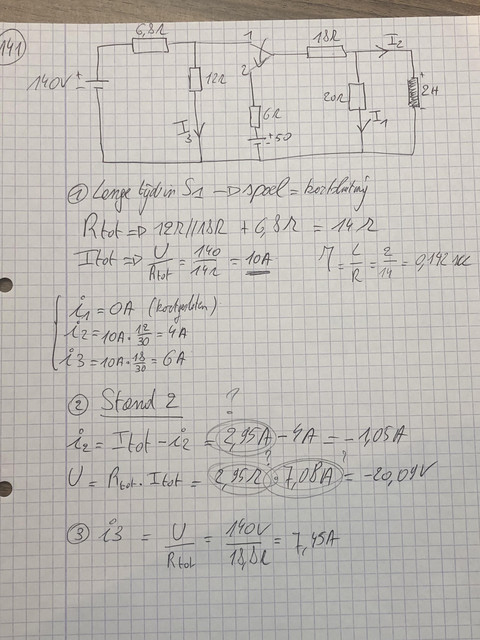 141
6,8Ω
1
18Ω
I2
140V
+
12Ω
2
20Ω
+
2H
-
6Ω
I3
I1
+50
① Lange tijd in S1 → spoel = kortsluiting
Rtot ⇒ 12Ω//18Ω + 6,8Ω = 14Ω
Itot ⇒ U/Rtot = 140/14Ω = 10A
τ = L/R = 2/14 = 0,142 sec
i1 = 0A (kortgesloten)
i2 = 10A · 12/30 = 4A
i3 = 10A · 18/30 = 6A
② Stand 2
?
i2 = Itot - i2 = 2,95A - 4A = -1,05A
? ?
U = Rtot · Itot = 2,95Ω · 7,08A = -20,09V
③ i3 = U/Rtot = 140V/18,8Ω = 7,45A